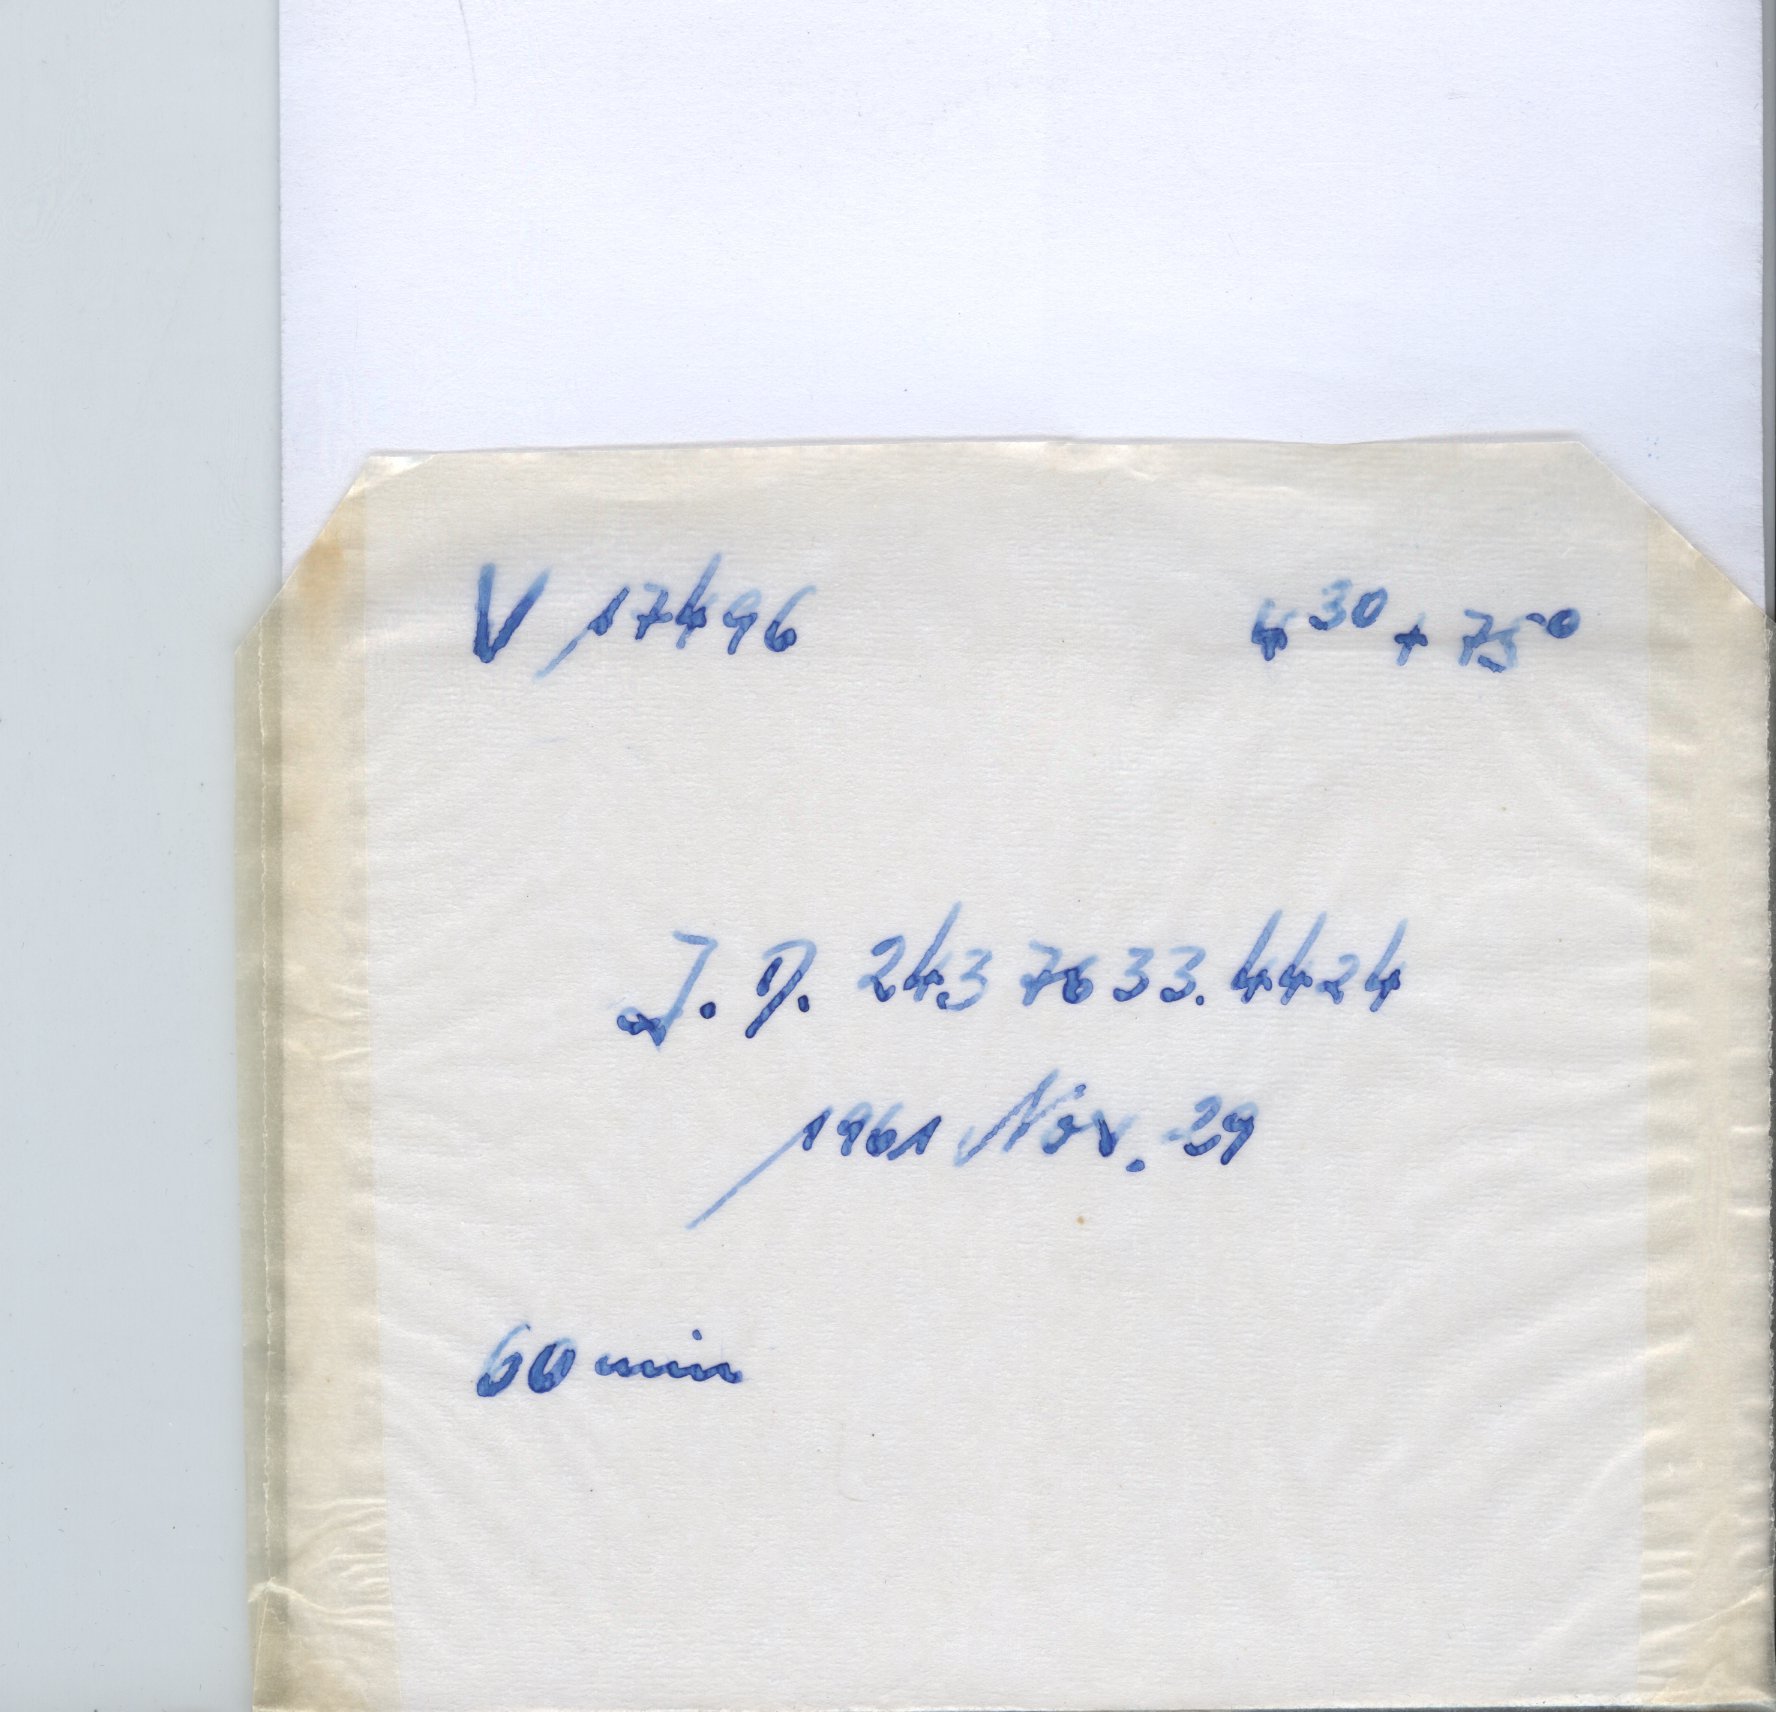 V 17496 4³⁰ + 75°
J. D. 2437633.4424
1961 Nov. 29
60 min